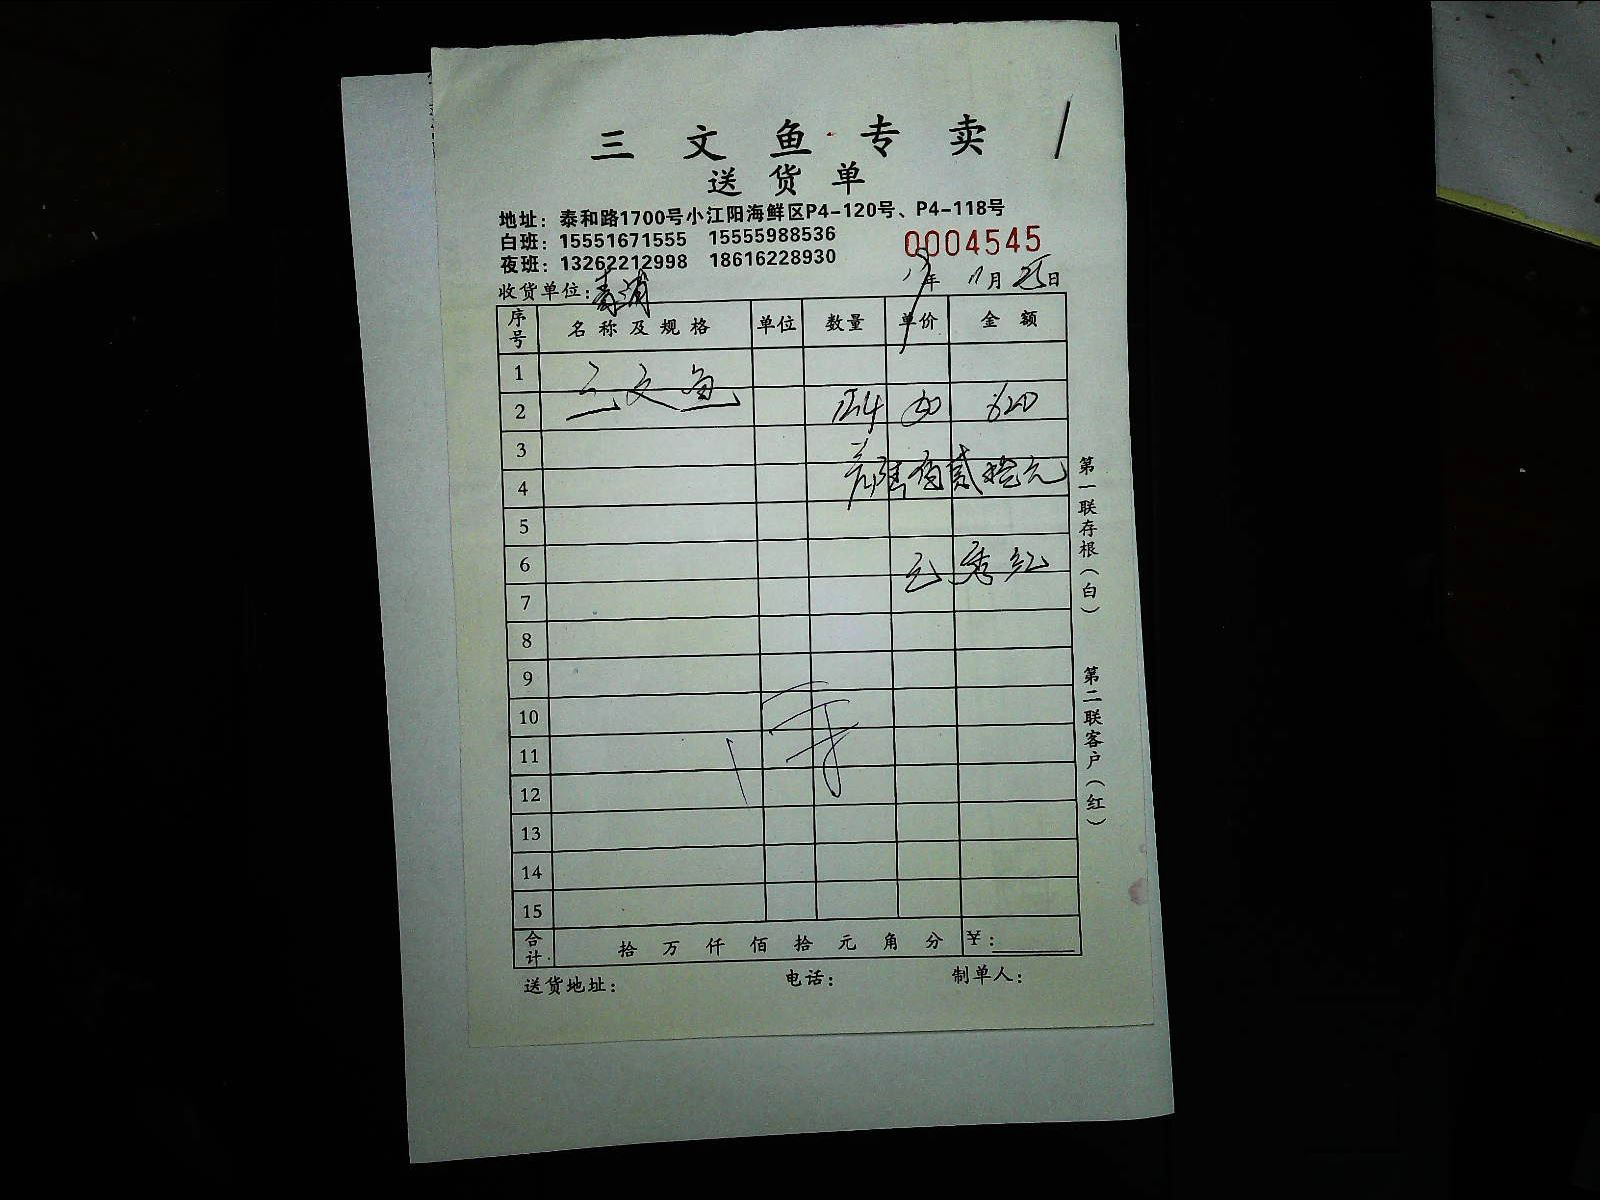 三文鱼专卖
送货单
地址：泰和路1700号小江阳海鲜区P4-120号、P4-118号
白班：15551671555 15555988536
夜班：13262212998 18616228930
0004545
收货单位：青浦 年 11月 日
序号 名称及规格 单位 数量 单价 金额
1 三文鱼
2 30 620
3
4 陆佰贰拾元
5
6 秀红
7
8
9
10
11
12
13
14
15
合计 拾 万 仟 佰 拾 元 角 分 ￥：
送货地址： 电话： 制单人：
第一联存根（白）
第二联客户（红）